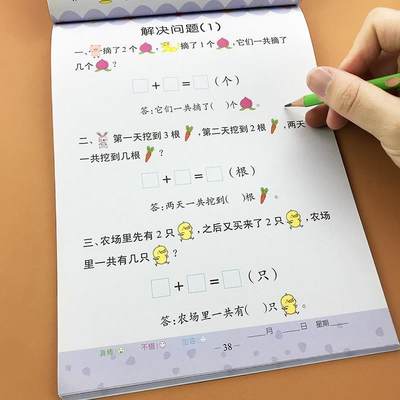 解决问题(1)
一、摘了2个，摘了1个，它们一共摘了
几个？
□+□=□(个)
答:它们一共摘了( )个。
二、第一天挖到3根，第二天挖到2根，两天
一共挖到几根？
□+□=□(根)
答:两天一共挖到( )根。
三、农场里先有2只，之后又买来了2只，农场
里一共有几只？
□+□=□(只)
答:农场里一共有( )只。
月 日 星期
38